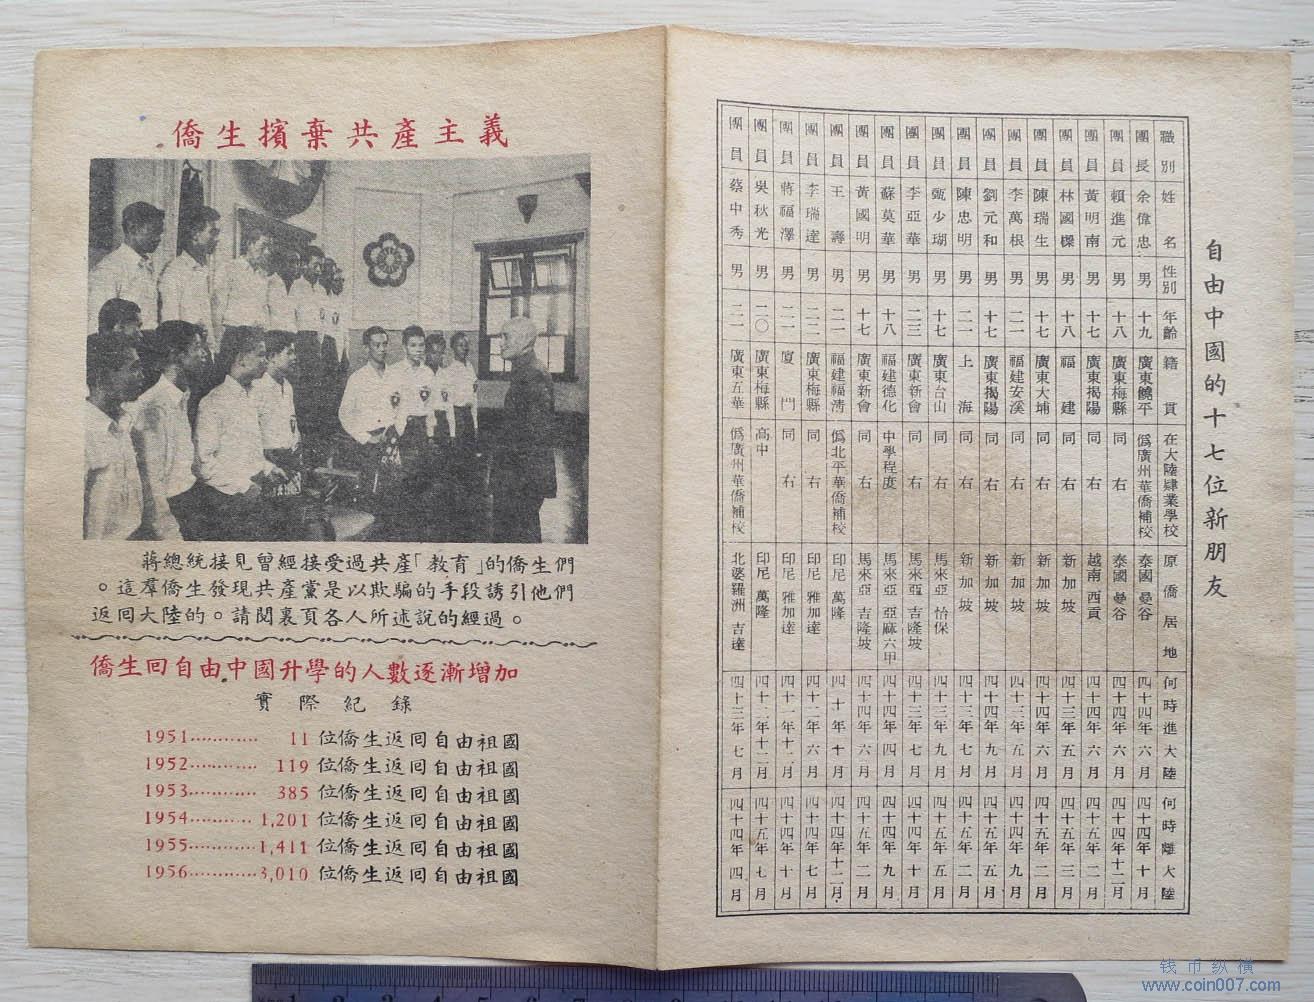 自由中國的十七位新朋友
職別 姓名 性別 年齡 籍貫 在大陸肄業學校 原僑居地 何時進大陸 何時離大陸
團長 余偉忠 男 十九 廣東饒平 僞廣州華僑補校 泰國 曼谷 四十四年六月 四十四年十月
團員 賴進元 男 十八 廣東梅縣 同右 泰國 曼谷 四十四年六月 四十四年十二月
團員 黃明南 男 十七 廣東揭陽 同右 越南 西貢 四十四年六月 四十五年二月
團員 林國樑 男 十八 福建 同右 新加坡 四十三年五月 四十五年三月
團員 陳瑞生 男 十七 廣東大埔 同右 新加坡 四十四年六月 四十五年二月
團員 李萬根 男 二一 福建安溪 同右 新加坡 四十三年五月 四十四年九月
團員 劉元和 男 十七 廣東揭陽 同右 新加坡 四十四年九月 四十五年五月
團員 陳忠明 男 二一 上海 同右 新加坡 四十三年七月 四十五年二月
團員 甄少瑚 男 十七 廣東台山 同右 馬來亞 怡保 四十三年九月 四十五年五月
團員 李亞華 男 二三 廣東新會 同右 馬來亞 吉隆坡 四十三年七月 四十四年十月
團員 蘇莫華 男 十八 福建德化 中學程度 馬來亞 亞麻六甲 四十四年四月 四十四年九月
團員 黃國明 男 十七 廣東新會 同右 馬來亞 吉隆坡 四十四年六月 四十五年二月
團員 王壽 男 二一 福建福清 僞北平華僑補校 印尼 萬隆 四十年十月 四十四年十二月
團員 李瑞達 男 二二 廣東梅縣 同右 印尼 雅加達 四十二年六月 四十四年七月
團員 蔣福澤 男 二一 廈門 同右 印尼 雅加達 四十一年十二月 四十四年十月
團員 吳秋光 男 二〇 廣東梅縣 高中 印尼 萬隆 四十二年十二月 四十五年七月
團員 蔡中秀 男 二一 廣東五華 僞廣州華僑補校 北婆羅洲 吉達 四十三年七月 四十四年四月
僑生擯棄共產主義
蔣總統接見曾經接受過共產「教育」的僑生們
。這羣僑生發現共產黨是以欺騙的手段誘引他們
返回大陸的。請閱裏頁各人所述說的經過。
僑生回自由中國升學的人數逐漸增加
實際紀錄
1951............ 11 位僑生返回自由祖國
1952............ 119 位僑生返回自由祖國
1953............ 385 位僑生返回自由祖國
1954........... 1,201 位僑生返回自由祖國
1955........... 1,411 位僑生返回自由祖國
1956........... 3,010 位僑生返回自由祖國
钱币纵横
www.coin007.com